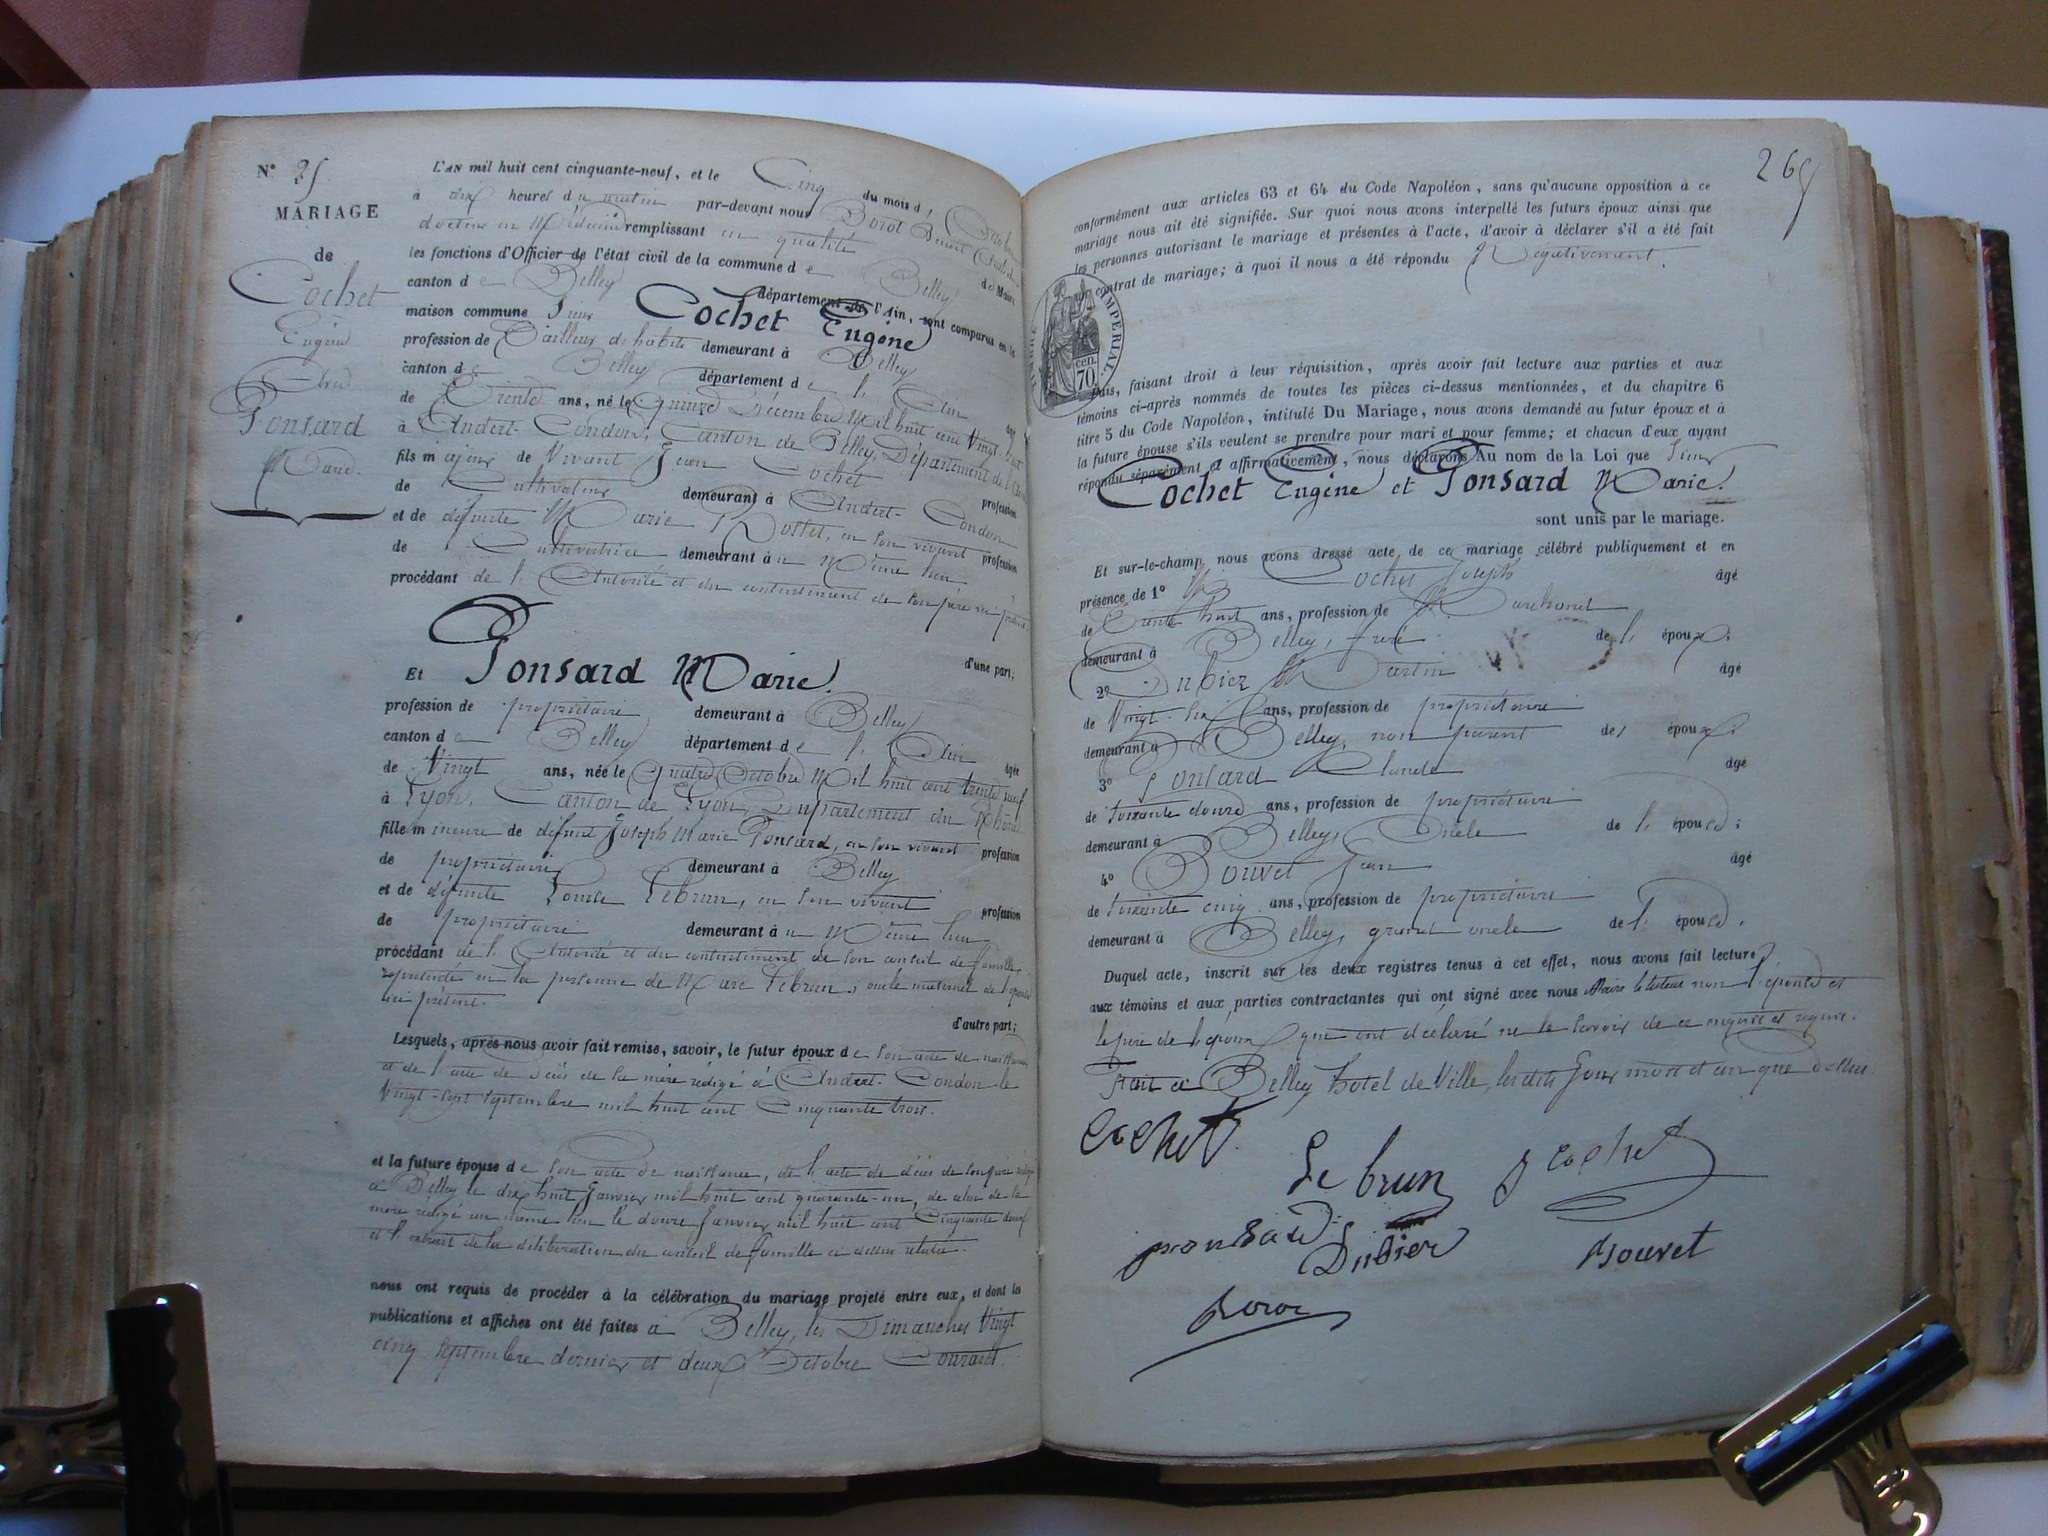 N° 25
MARIAGE
de
Cochet
Eugène
et
Ponsard
Marie.
L'AN mil huit cent cinquante-neuf, et le Cinq du mois d' Octobre
à dix heures du matin par-devant nous Benoit
docteur en Médecine remplissant en qualité de Maire
les fonctions d'Officier de l'état civil de la commune de Belley
canton de Belley département de l'Ain, sont comparus en la
maison commune Sieur Cochet Eugène
profession de Tailleur d'habits demeurant à Belley
canton de Belley département de l'Ain âgé
de Trente ans, né le quinze Décembre Mil huit cent Vingt-huit
à Andert-Condon, Canton de Belley, Département de l'Ain
fils majeur de Vivant Jean Cochet profession
de Cultivateur demeurant à Andert-Condon
et de défunte Marie en son vivant profession
de Cultivatrice demeurant au Même lieu
procédant de l'Autorité et du contentement de son père ici présent.
d'une part;
Et Ponsard Marie.
profession de propriétaire demeurant à Belley
canton de Belley département de l'Ain âgée
de Vingt ans, née le quatre Octobre Mil huit cent trente neuf
à Lyon, Canton de Lyon, Département du Rhône
fille mineure de défunt Joseph Marie Ponsard, en son vivant profession
de propriétaire demeurant à Belley
et de défunte Louise Lebrun, en son vivant profession
de propriétaire demeurant au Même lieu
procédant de l'Autorité et du contentement de son conseil de famille
représenté en la personne de Marc Lebrun, oncle maternel de l'épouse
ici présent.
d'autre part;
Lesquels, après nous avoir fait remise, savoir, le futur époux de son acte de naissance
et de l'acte de décès de sa mère rédigé à Andert-Condon le
Vingt-sept septembre mil huit cent Cinquante trois.
et la future épouse de son acte de naissance, de l'acte de décès de son père rédigé
à Belley le dix huit Janvier mil huit cent quarante-un, de celui de la
mère rédigé au même lieu le douze Janvier mil huit cent Cinquante deux
et l'extrait de la délibération du conseil de famille ci dessus relatée.
nous ont requis de procéder à la célébration du mariage projeté entre eux, et dont les
publications et affiches ont été faites à Belley, les Dimanches Vingt
cinq septembre dernier et deux Octobre Courant.
265
conformément aux articles 63 et 64 du Code Napoléon, sans qu'aucune opposition à ce
mariage nous ait été signifiée. Sur quoi nous avons interpellé les futurs époux ainsi que
les personnes autorisant le mariage et présentes à l'acte, d'avoir à déclarer s'il a été fait
un contrat de mariage; à quoi il nous a été répondu Négativement.
TIMBRE IMPÉRIAL
70 cen.
Puis, faisant droit à leur réquisition, après avoir fait lecture aux parties et aux
témoins ci-après nommés de toutes les pièces ci-dessus mentionnées, et du chapitre 6
titre 5 du Code Napoléon, intitulé Du Mariage, nous avons demandé au futur époux et à
la future épouse s'ils veulent se prendre pour mari et pour femme; et chacun d'eux ayant
répondu séparément et affirmativement, nous déclarons Au nom de la Loi que Sieur
Cochet Eugène et Ponsard Marie.
sont unis par le mariage.
Et sur-le-champ nous avons dressé acte de ce mariage célébré publiquement et en
présence de 1° Cochet Joseph âgé
de Trente huit ans, profession de Marchand
demeurant à Belley, frère de l'époux.
2° Dubiez Martin âgé
de Vingt-six ans, profession de propriétaire
demeurant à Belley, non parent des époux.
3° Ponsard Claude âgé
de soixante douze ans, profession de propriétaire
demeurant à Belley, Oncle de l'épouse;
4° Bouvet Jean âgé
de soixante cinq ans, profession de propriétaire
demeurant à Belley, grand oncle de l'épouse.
Duquel acte, inscrit sur les deux registres tenus à cet effet, nous avons fait lecture
aux témoins et aux parties contractantes qui ont signé avec nous Maire le tuteur non l'épouse et
le père de l'époux que ont déclaré ne le savoir de ce enquis et requis.
Fait à Belley hôtel de Ville, lesdits Jour mois et an que dessus
Cochet
Le brun
J Cochet
ponsard
Dubiez
Bouvet